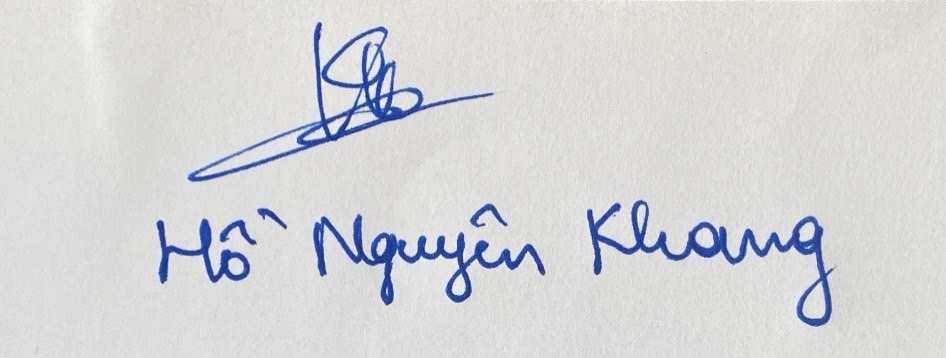 Hồ Nguyên Khang